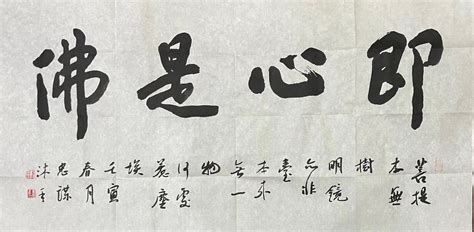 即心是佛
菩提
本無
樹
明鏡
亦非
臺
本来
無一
物
何處
惹塵
埃
壬寅
春月